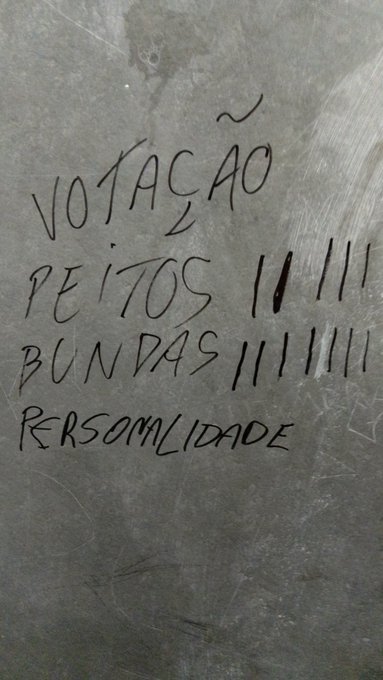 VOTAÇÃO
PEITOS || |||
BUNDAS ||||||||
PERSONALIDADE